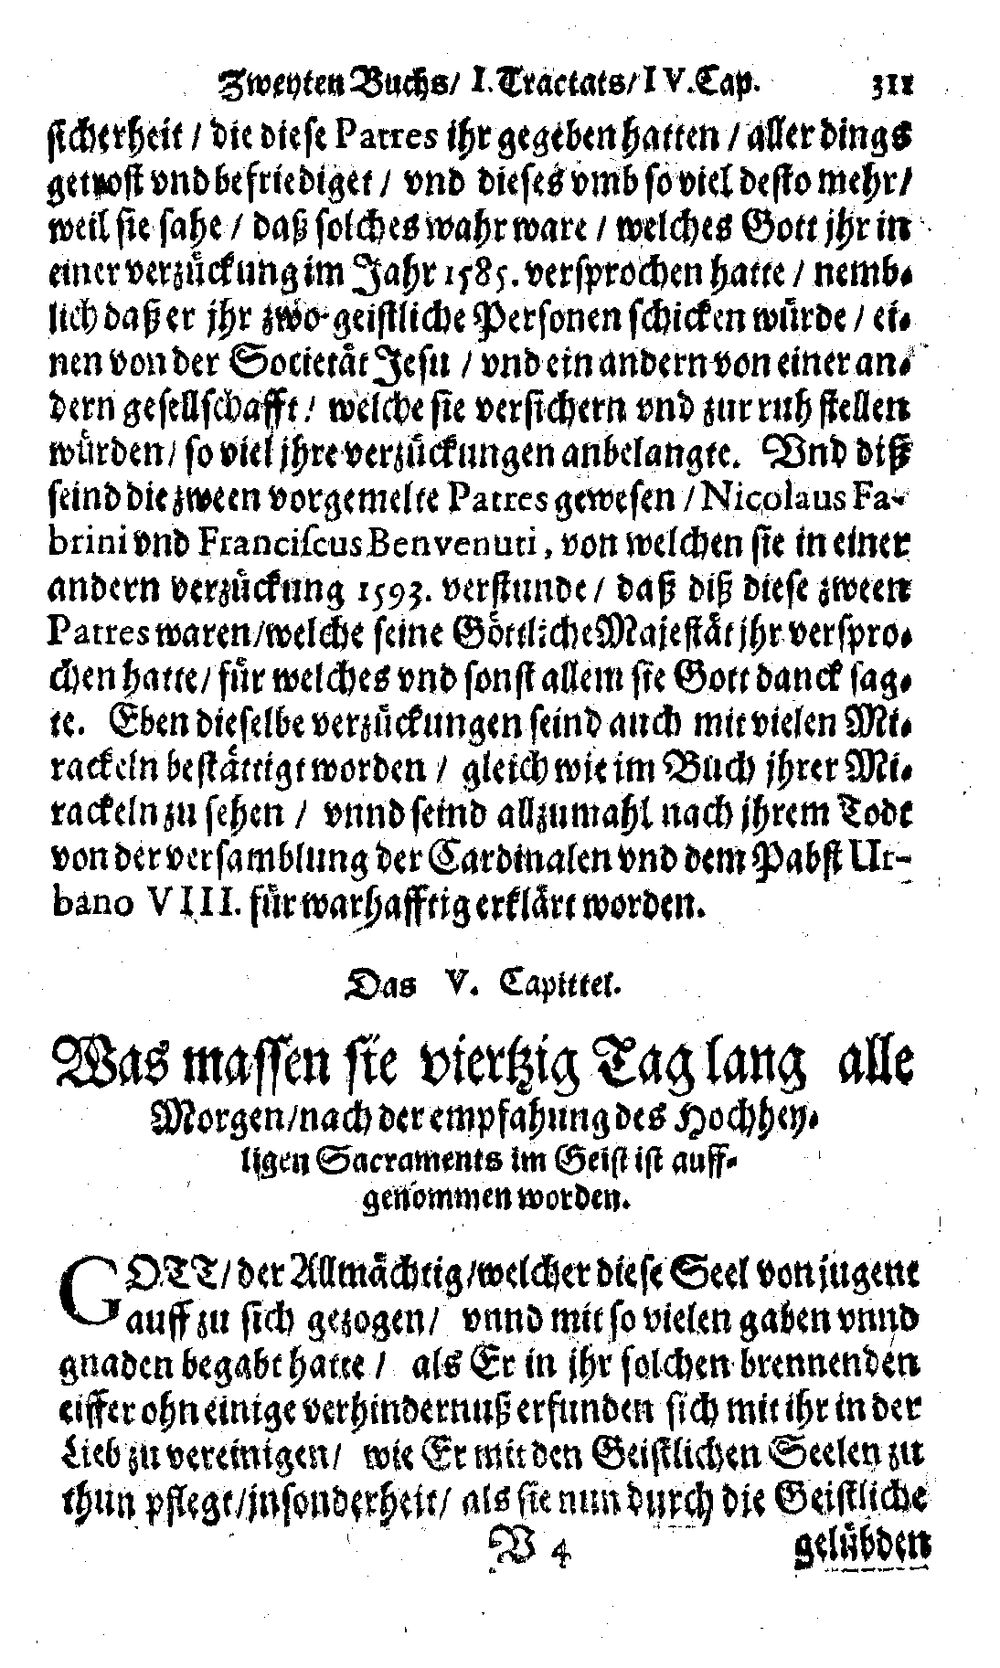 Zweyten Buchs/ I. Tractats/ IV. Cap. 311
sicherheit / die diese Patres ihr gegeben hatten / aller dings
getrost vnd befriediget / vnd dieses vmb so viel desto mehr/
weil sie sahe / daß solches wahr ware / welches Gott jhr in
einer verzückung im Jahr 1585. versprochen hatte / nemb-
lich daß er jhr zwo geistliche Personen schicken würde / ei-
nen von der Societät Jesu / vnd ein andern von einer an-
dern gesellschafft / welche sie versichern vnd zur ruh stellen
würden/ so viel jhre verzückungen anbelangte. Vnd diß
seind die zween vorgemelte Patres gewesen / Nicolaus Fa-
brini vnd Franciscus Benvenuti, von welchen sie in einer
andern verzückung 1593. verstunde / daß diß diese zween
Patres waren/welche seine Göttliche Majestät jhr verspro-
chen hatte/ für welches vnd sonst allem sie Gott danck sag-
te. Eben dieselbe verzückungen seind auch mit vielen Mi-
rackeln bestättigt worden / gleich wie im Buch jhrer Mi-
rackeln zu sehen / vnnd seind allzumahl nach jhrem Todt
von der versamblung der Cardinalen vnd dem Pabst Ur-
bano VIII. für warhafftig erklärt worden.
Das V. Capittel.
Was massen sie viertzig Tag lang alle
Morgen/nach der empfahung des Hochhey-
ligen Sacraments im Geist ist auff-
genommen worden.
GOTT/ der Allmächtig/welcher diese Seel von jugent
auff zu sich gezogen/ vnnd mit so vielen gaben vnnd
gnaden begabt hatte / als Er in jhr solchen brennenden
eiffer ohn einige verhindernuß erfunden sich mit ihr in der
Lieb zu vereinigen/ wie Er mit den Geistlichen Seelen zu
thun pflegt/insonderheit/ als sie nun durch die Geistliche
V 4 gelübden